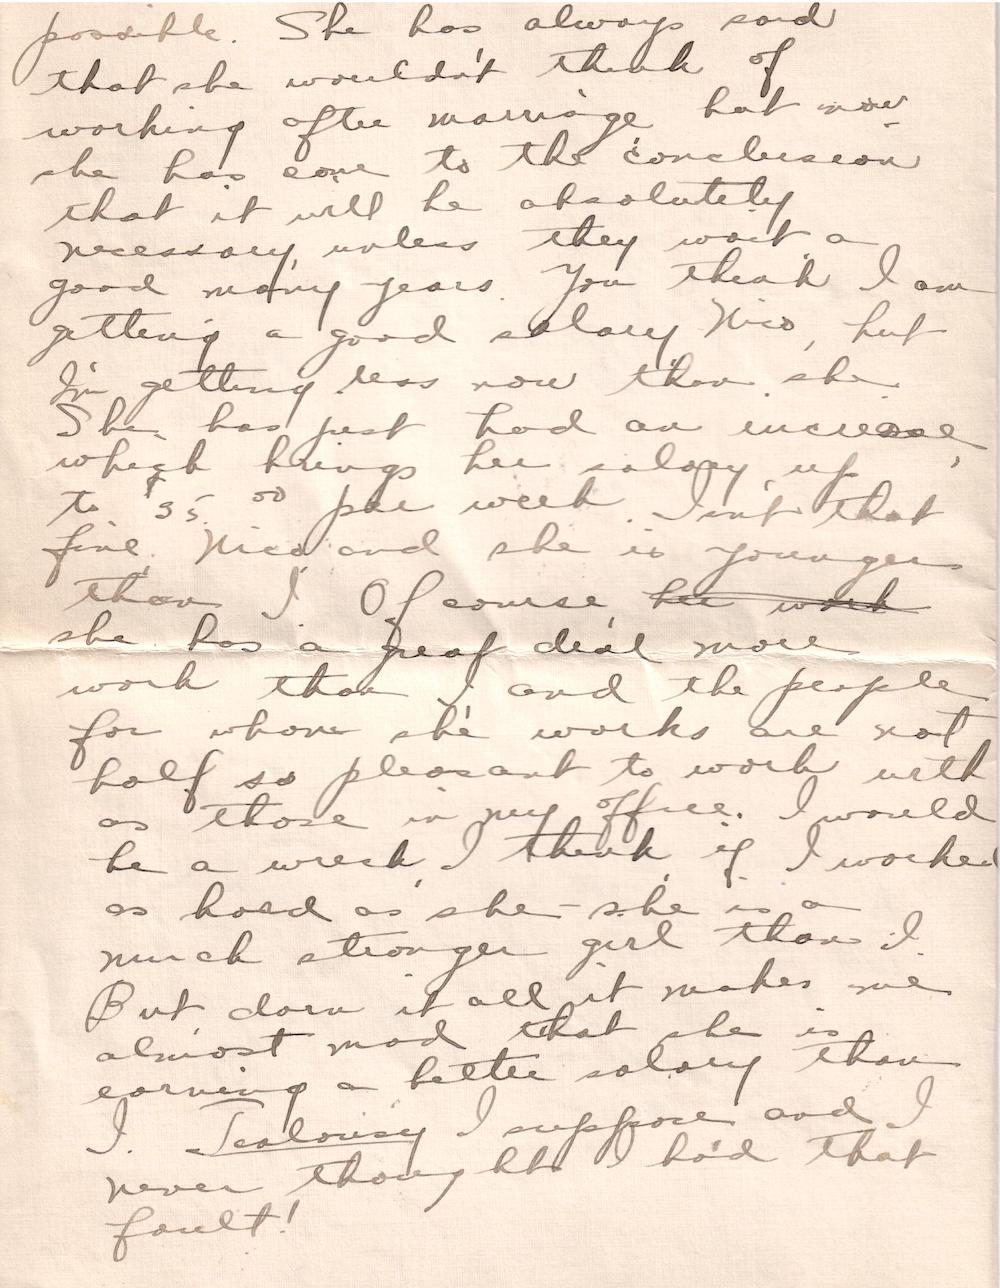 possible. She has always said
that she wouldn't think of
working after marriage but now
she has come to the conclusion
that it will be absolutely
necessary, unless they wait a
good many years. You think I am
getting a good salary Nico, but
I'm getting less now than she.
She has just had an increase,
which brings her salary up
to $35.00 per week. Isn't that
fine Nico and she is younger
than I. Of course her work
she has a great deal more
work than I and the people
for whom she works are not
half so pleasant to work with
as those in my office. I would
be a wreck, I think if I worked
as hard as she - she is a
much stronger girl than I.
But darn it all it makes me
almost mad that she is
earning a better salary than
I. Jealousy I suppose and I
never thought I had that
fault!